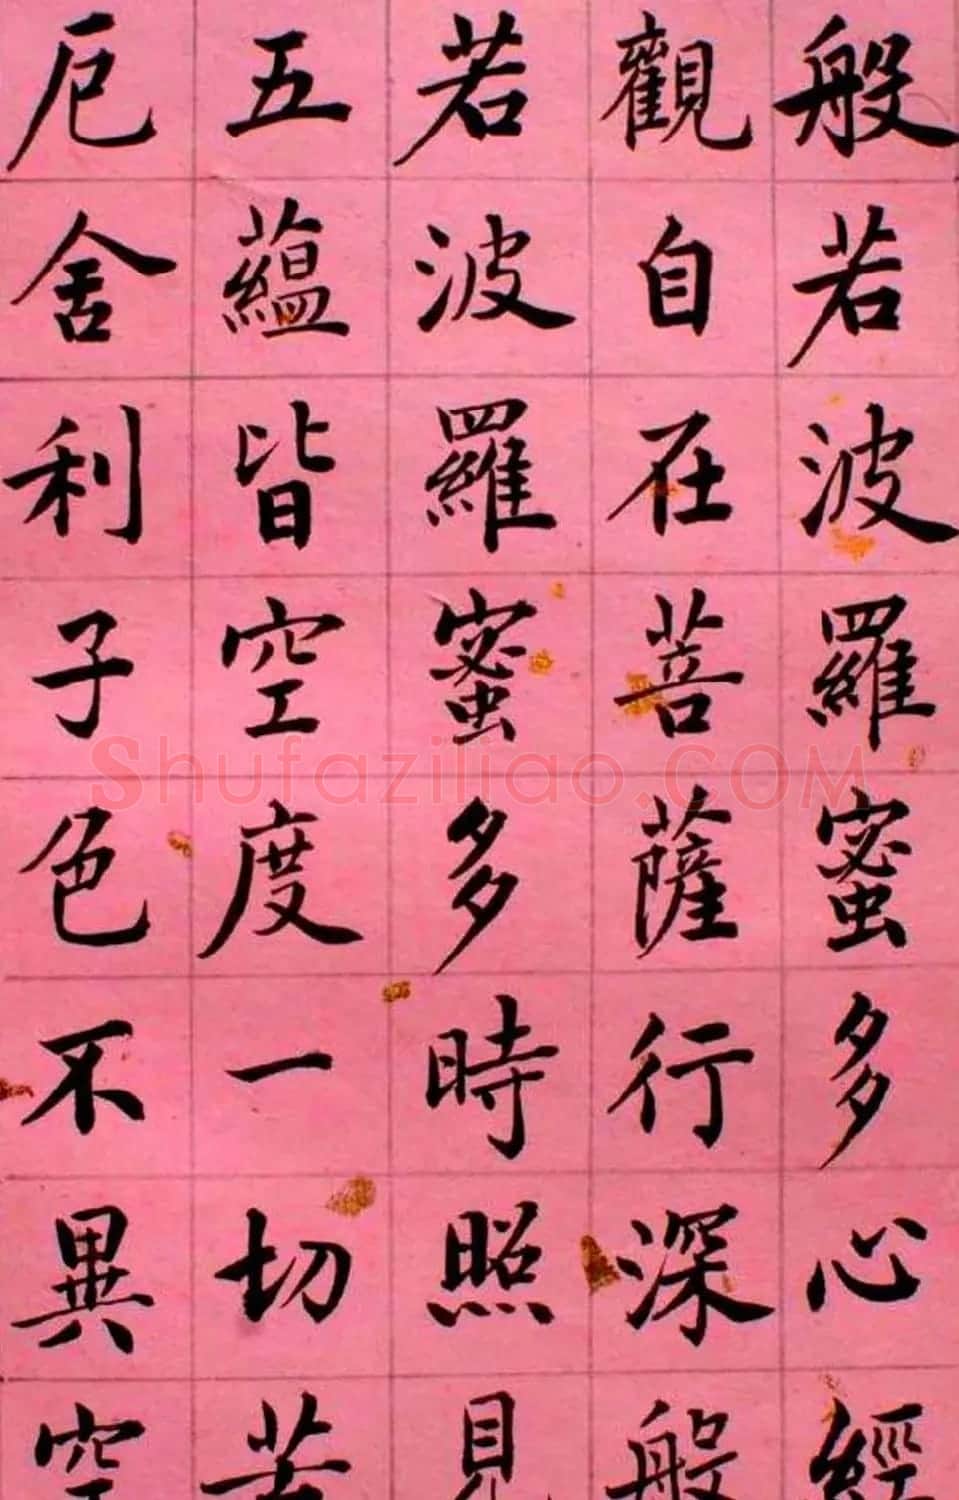 般若波羅蜜多心經
觀自在菩薩行深般
若波羅蜜多時照見
五蘊皆空度一切苦
厄舍利子色不異空
Shufaziliao.COM